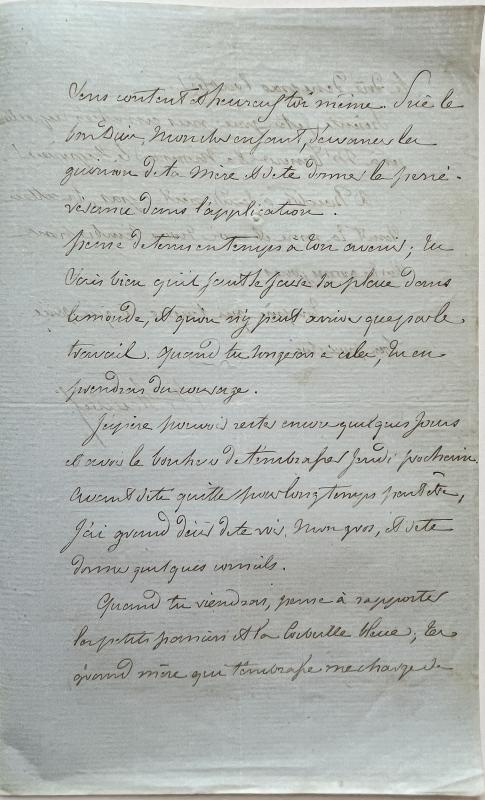 Sens content & heureux toi même. Prie le
bon Dieu, Mon cher enfant, d'avancer la
guérison de ta mère & de te donner le persé-
vérance dans l'application.
pense de tems en temps à ton avenir ; tu
Vois bien qu'il faut se faire sa place dans
le monde, & qu'on n'y peut arriver que par le
travail. quand tu songeras à cela, tu en
prendras du courage.
J'espère pouvoir rester encore quelques Jours
& avoir le bonheur de t'embrasser Jeudi prochain.
avant de te quitter pour longtemps peut être,
J'ai grand désir de te voir, Mon gros, & de te
donner quelques conseils.
Quand tu viendras, pense à rapporter
les petits paniers & la Corbeille bleue ; ta
grand mère qui t'embrasse me charge de